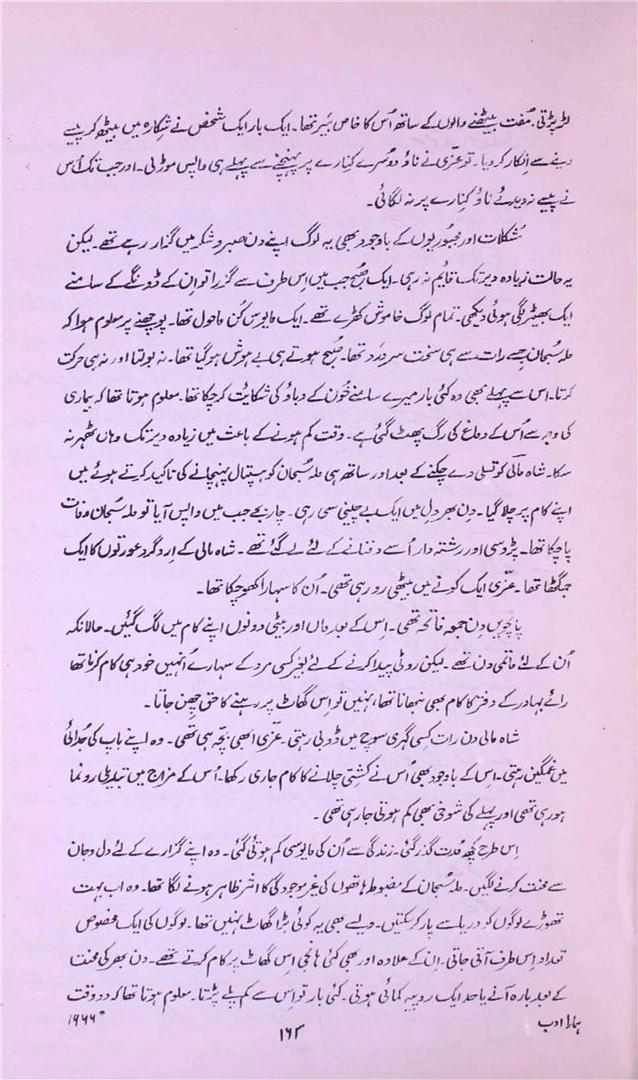 لڑ پڑتی۔ مُفت بیٹھنے والوں کے ساتھ اُس کا خاص بَیر تھا۔ ایک بار ایک شخص نے شکارہ میں بیٹھ کر پیسے
دینے سے اِنکار کر دیا۔ تو عزّی نے ناؤ دوُسرے کِنارے پر پہنچنے سے پہلے ہی واپس موڑ لی۔ اور جب تک اُس
نے پیسے نہ دیدئے ناؤ کنارے پر نہ لگائی۔
مُشکلات اور مجبوُریوں کے باوجود بھی یہ لوگ اپنے دن صبر و شکر میں گذار رہے تھے۔ لیکن
یہ حالت زیادہ دیر تک قایٔم نہ رہی۔ ایک صُبح جب میں اِس طرف سے گزرا تو اِن کے ڈونگے کے سامنے
ایک بھیڑ لگی ہوئی دیکھی۔ تمام لوگ خاموش کھڑے تھے۔ ایک مایوُس کُن ماحول تھا۔ پوچھنے پر معلوم ہوا کہ
ملہ سُبحان جِسے رات سے ہی سخت سر درد تھا۔ صُبح ہوتے ہی بے ہوش ہو گیا تھا۔ نہ بولتا اور نہ ہی حرکت
کرتا۔ اس سے پہلے بھی وہ کئی بار میرے سامنے خوُن کے دباؤ کی شکایٔت کر چکا تھا۔ معلوم ہوتا تھا کہ بیماری
کی وجہ سے اُس کے دماغ کی رگ پھٹ گئی ہے۔ وقت کم ہونے کے باعث میں زیادہ دیر تک وہاں ٹھہر نہ
سکا۔ شاہ مالی کو تسلی دے چکنے کے بعد اور ساتھ ہی ملہ سُبحان کو ہسپتال پہنچانے کی تاکید کرتے ہوئے میں
اپنے کام پر چلا گیا۔ دِن بھر دِل میں ایک بے چینی سی رہی۔ چار بجے جب میں واپس آیا تو ملہ سُبحان وفات
پا چکا تھا۔ پڑوسی اور رشتہ دار اُسے دفنانے کے لئے لے گئے تھے۔ شاہ مالی کے اِرد گرد عورتوں کا ایک
جمگٹھا تھا۔ عزّی ایک کونے میں بیٹھی رو رہی تھی۔ اُن کا سہارا کھو چکا تھا۔
پانچویں دِن جمعہ فاتحہ تھی۔ اِس کے بعد ماں اور بیٹی دونوں اپنے کام میں لگ گئیں۔ حالانکہ
اُن کے لئے ماتمی دن تھے۔ لیکن روٹی پیدا کرنے کے لئے بغیر کسی مرد کے سہارے اُنہیں خود ہی کام کرنا تھا
رائے بہادر کے دفتر کا کام بھی نبھانا تھا، نہیں تو اِس گھاٹ پر رہنے کا حق چھِن جاتا۔
شاہ مالی دن رات کسی گہری سوچ میں ڈوبی رہتی۔ عزّی ابھی بچّہ ہی تھی۔ وہ اپنے باپ کی جُدائی
میں غمگین رہتی۔ اِس کے باوجود بھی اُس نے کشتی چلانے کا کام جاری رکھا۔ اُس کے مزاج میں تبدیلی رونما
ہو رہی تھی اور پہلے کی شوخی بھی کم ہوتی جا رہی تھی۔
اِس طرح کچھ مُدت گذر گئی۔ زندگی سے اُن کی مایوُسی کم ہوتی گئی۔ وہ اپنے گزارے کے لئے دِل و جان
سے محنت کرنے لگیں۔ ملہ سُبحان کے مضبوط ہاتھوں کی غیر موجودگی کا اثر ظاہر ہونے لگا تھا۔ وہ اب بہت
تھوڑے لوگوں کو دریا سے پار کر سکتیں۔ ویسے بھی یہ کوئی بڑا گھاٹ نہیں تھا۔ لوگوں کی ایک مخصوص
تعداد اِس طرف آتی جاتی۔ اِن کے علاوہ اور بھی کئی ہانجی اِس گھاٹ پر کام کرتے تھے۔ دن بھر کی محنت
کے بعد بارہ آنے یا حد ایک روپیہ کمائی ہوتی۔ کئی بار تو اِس سے کم پلے پڑتا۔ معلوم ہوتا تھا کہ دو وقت
ہمارا ادب
۱۶۳
۱۹۶۶ء